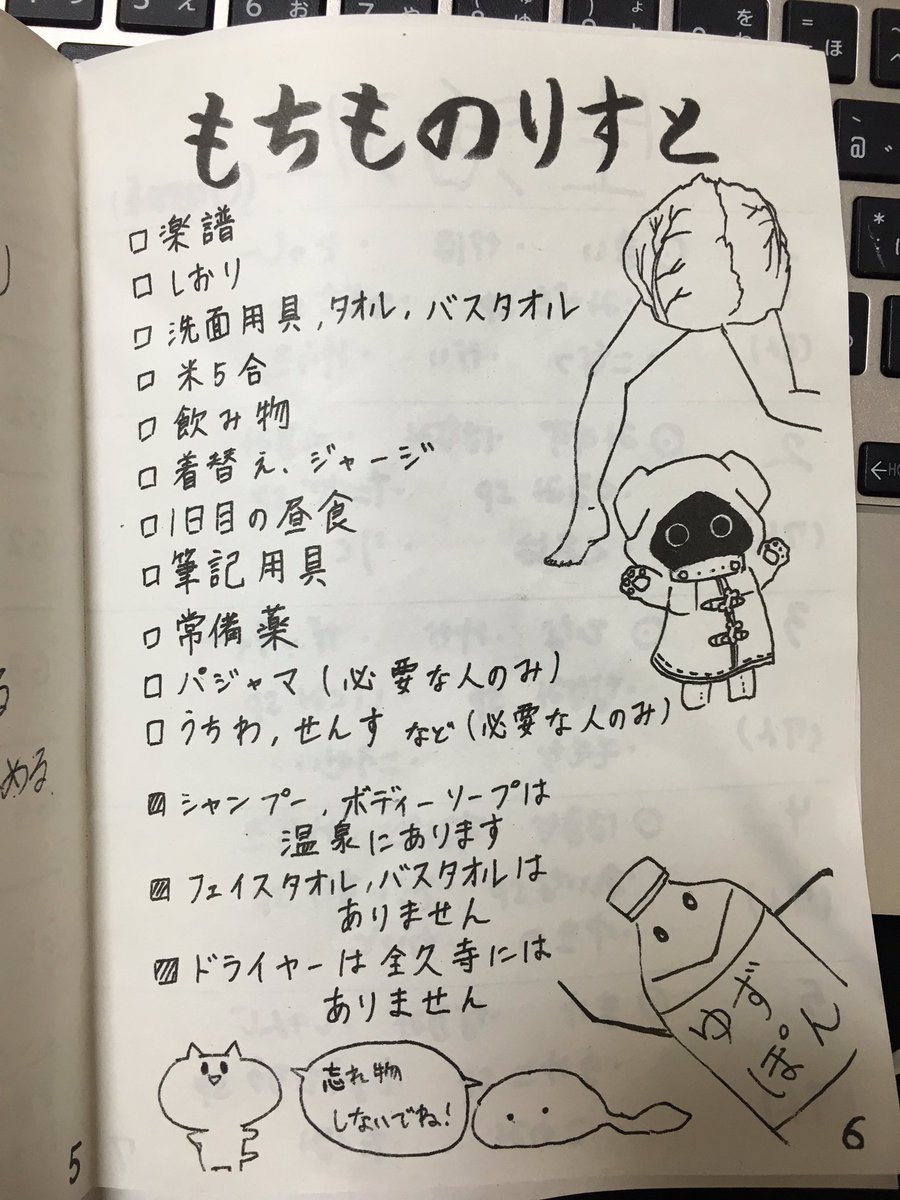 もちものりすと
□ 楽譜
□ しおり
□ 洗面用具, タオル, バスタオル
□ 米5合
□ 飲み物
□ 着替え、ジャージ
□ 1日目の昼食
□ 筆記用具
□ 常備薬
□ パジャマ (必要な人のみ)
□ うちわ, せんす など (必要な人のみ)
シャンプー, ボディーソープは
温泉にあります
フェイスタオル, バスタオルは
ありません
ドライヤーは全久寺には
ありません
ゆず
ぽん
忘れ物
しないでね!
める
5
6